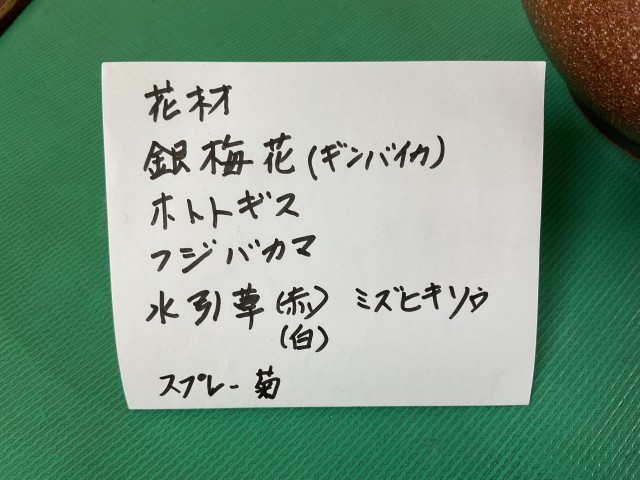 花材
銀梅花(ギンバイカ)
ホトトギス
フジバカマ
水引草(赤) ミズヒキソウ
(白)
スプレー菊